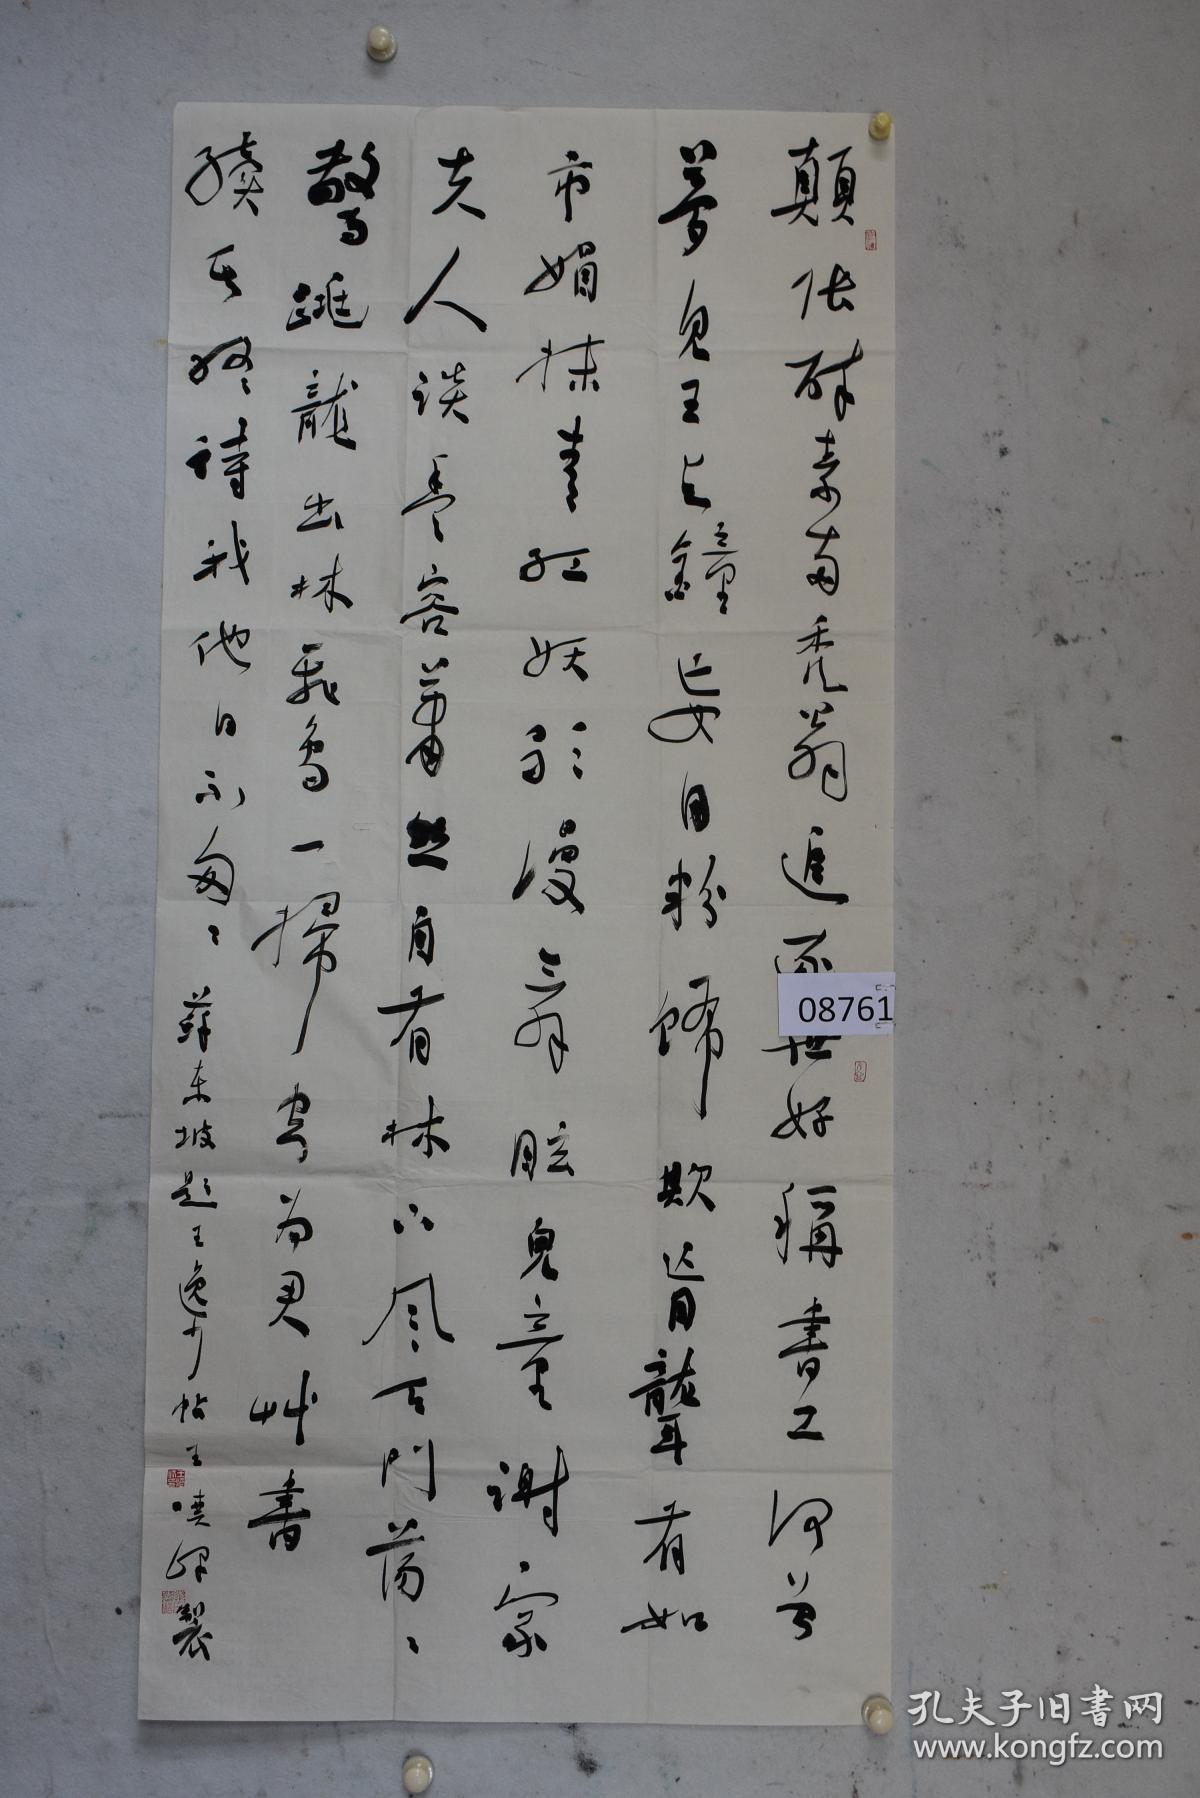 顛張醉素兩禿翁追逐世好稱書工何曾
夢見王与鐘妄自粉飾欺盲聾有如
市娼抹青紅妖歌漫舞眩兒童謝家
夫人談豐容蕭然自有林下風天門蕩〻
驚跳龍出林飛鳥一掃空為君艸書
續其終待我他日不匆〻 蘇東坡題王逸少帖 王 製
08761
孔夫子旧书网
www.kongfz.com